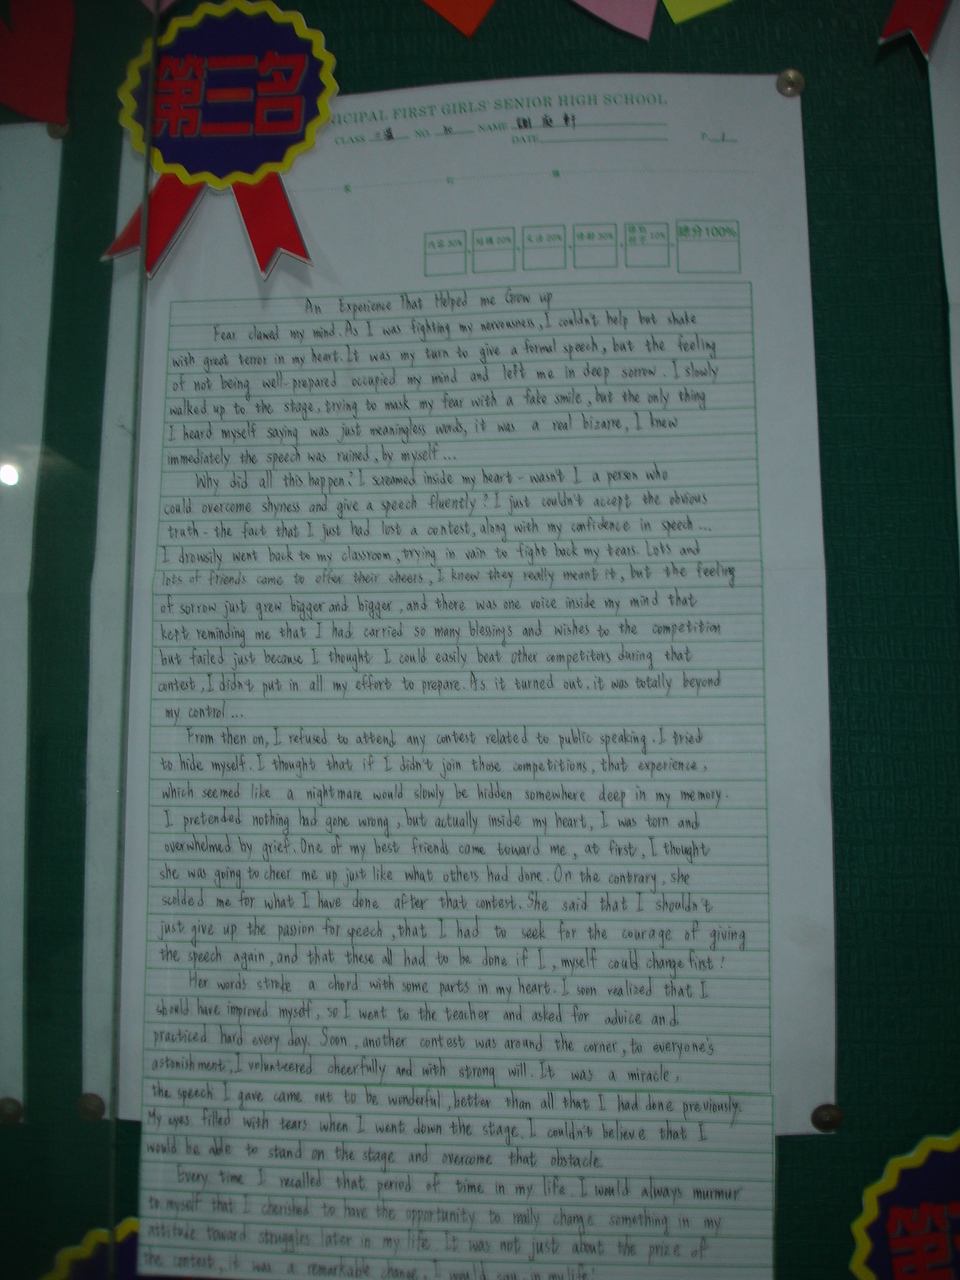 第三名
ICIPAL FIRST GIRLS' SENIOR HIGH SCHOOL
CLASS NO. NAME
DATE
內容 30% 組織 20% 文法 20% 總分100%
An Experience That Helped me Grow up
Fear clawed my mind. As I was fighting my nervousness, I couldn't help but shake
with great terror in my heart. It was my turn to give a formal speech, but the feeling
of not being well-prepared occupied my mind and left me in deep sorrow. I slowly
walked up to the stage, trying to mask my fear with a fake smile, but the only thing
I heard myself saying was just meaningless words, it was a real bizarre, I knew
immediately the speech was ruined, by myself...
Why did all this happen? I screamed inside my heart - wasn't I a person who
could overcome shyness and give a speech fluently? I just couldn't accept the obvious
truth - the fact that I just had lost a contest, along with my confidence in speech...
I drowsily went back to my classroom, trying in vain to fight back my tears. Lots and
lots of friends came to offer their cheers, I knew they really meant it, but the feeling
of sorrow just grew bigger and bigger, and there was one voice inside my mind that
kept reminding me that I had carried so many blessings and wishes to the competition
but failed just because I thought I could easily beat other competitors during that
contest, I didn't put in all my effort to prepare. As it turned out, it was totally beyond
my control...
From then on, I refused to attend any contest related to public speaking. I tried
to hide myself. I thought that if I didn't join those competitions, that experience,
which seemed like a nightmare would slowly be hidden somewhere deep in my memory.
I pretended nothing had gone wrong, but actually inside my heart, I was torn and
overwhelmed by grief. One of my best friends came toward me, at first, I thought
she was going to cheer me up just like what others had done. On the contrary, she
scolded me for what I have done after that contest. She said that I shouldn't
just give up the passion for speech, that I had to seek for the courage of giving
the speech again, and that these all had to be done if I, myself could change first!
Her words stroke a chord with some parts in my heart. I soon realized that I
should have improved myself, so I went to the teacher and asked for advice and
practiced hard every day. Soon, another contest was around the corner, to everyone's
astonishment, I volunteered cheerfully and with strong will. It was a miracle,
the speech I gave came out to be wonderful, better than all that I had done previously.
My eyes filled with tears when I went down the stage. I couldn't believe that I
would be able to stand on the stage and overcome that obstacle.
Every time I recalled that period of time in my life, I would always murmur
to myself that I cherished to have the opportunity to really change something in my
attitude toward struggles later in my life. It was not just about the prize of
the contest, it was a remarkable change, I would say, in my life!